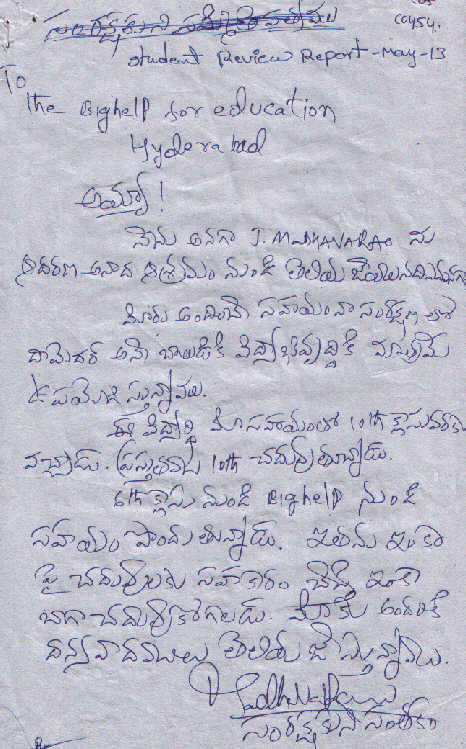 సంరక్షకుని సమ్మతి పత్రము
CC454.
Student Review Report - May - 13
To
The Bighelp for education
Hyderabad
అయ్యా!
నేను అనగా J. ను
అనాధ ఆశ్రమం నుండి తెలియ జేయునది
మీరు అందించే సహాయం నా సంరక్షణ లో
దామోదర్ అనే బాలుడికి విద్యాభివృద్ధికి మాత్రమే
ఉపయోగిస్తున్నాము.
ఈ విద్యార్థి మీ సహాయంతో 10th క్లాసు వరకు
వచ్చాడు. ప్రస్తుతము 10th చదువుతున్నాడు.
6th క్లాసు నుండి Bighelp నుండి
సహాయం పొందుతున్నాడు. ఇతను ఇంకా
పై చదువులకు సహకారం చేస్తే ఇంకా
బాగా చదువుకోగలడు. మీకు అందరికి
ధన్యవాదములు తెలియజేస్తున్నాము.
సంరక్షకుని సంతకం